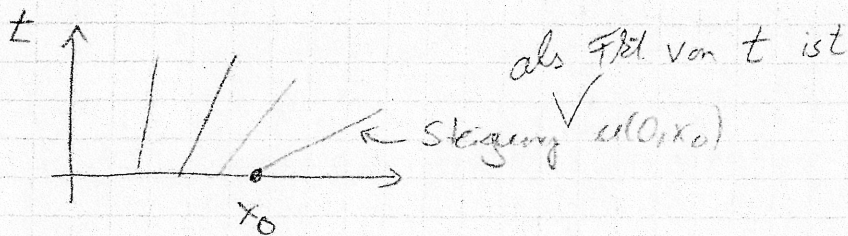 t
als Fkt von t ist
Steigung u(0,x₀)
x₀